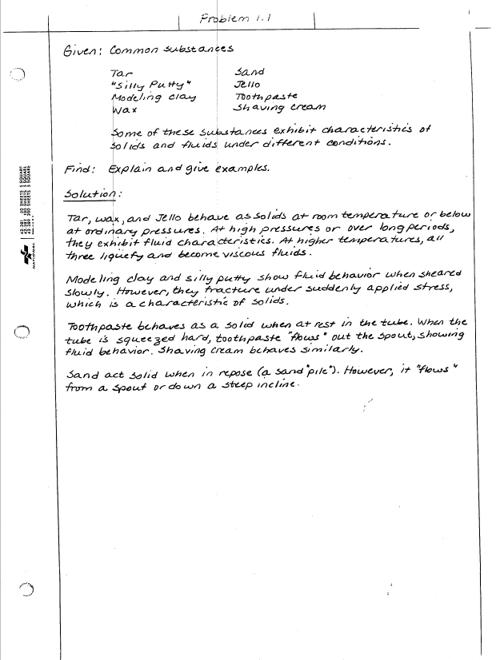 Problem 1.1
Given: Common substances
Tar Sand
"Silly Putty" Jello
Modeling clay Toothpaste
Wax Shaving cream
Some of these substances exhibit characteristics of
solids and fluids under different conditions.
Find: Explain and give examples.
Solution:
Tar, wax, and Jello behave as solids at room temperature or below
at ordinary pressures. At high pressures or over long periods,
they exhibit fluid characteristics. At higher temperatures, all
three liquefy and become viscous fluids.
Modeling clay and silly putty show fluid behavior when sheared
slowly. However, they fracture under suddenly applied stress,
which is a characteristic of solids.
Toothpaste behaves as a solid when at rest in the tube. When the
tube is squeezed hard, toothpaste "flows" out the spout, showing
fluid behavior. Shaving cream behaves similarly.
Sand act solid when in repose (a sand "pile"). However, it "flows"
from a spout or down a steep incline.